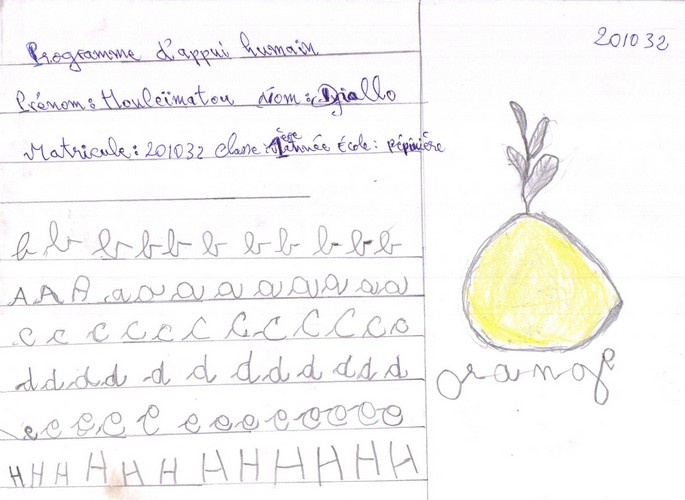 Programme d'appui humain
Prénom: Houleïmatou Nom: Diallo
Matricule: 201032 Classe: 1ère Année École: Pépinière
b b b b b b b b b b b
A A A a a a a a a a a a a
c c c c c C C C C C C c c
d d d d d d d d d d d d
e e e e e e e e e e e e e
H H H H H H H H H H H H
201032
orange